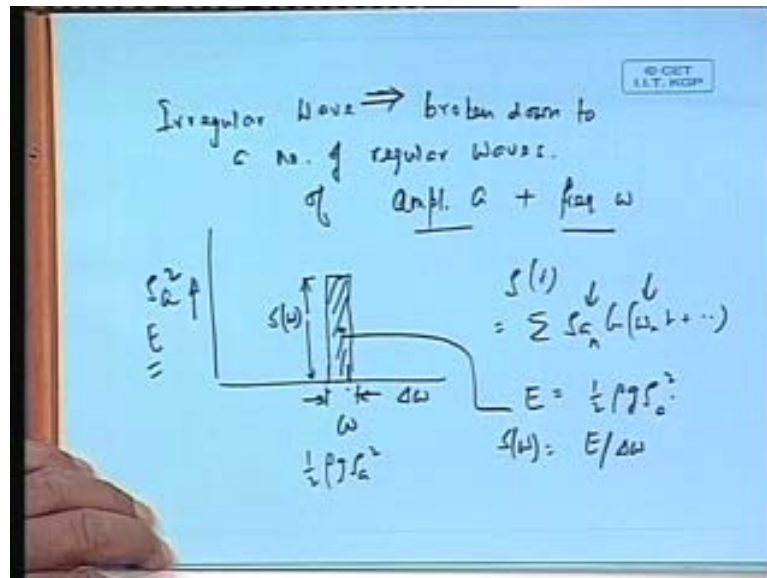 © CET
I.I.T. KGP
Irregular Wave ⇒ broken down to
a no. of regular waves.
of ampl. a + freq ω
ζa² ↑
E
S(ω)
Δω
ω
½ρgζa²
ζ(t)
= Σ ζan (ωn t + ··)
E = ½ρgζa²
S(ω) = E/Δω